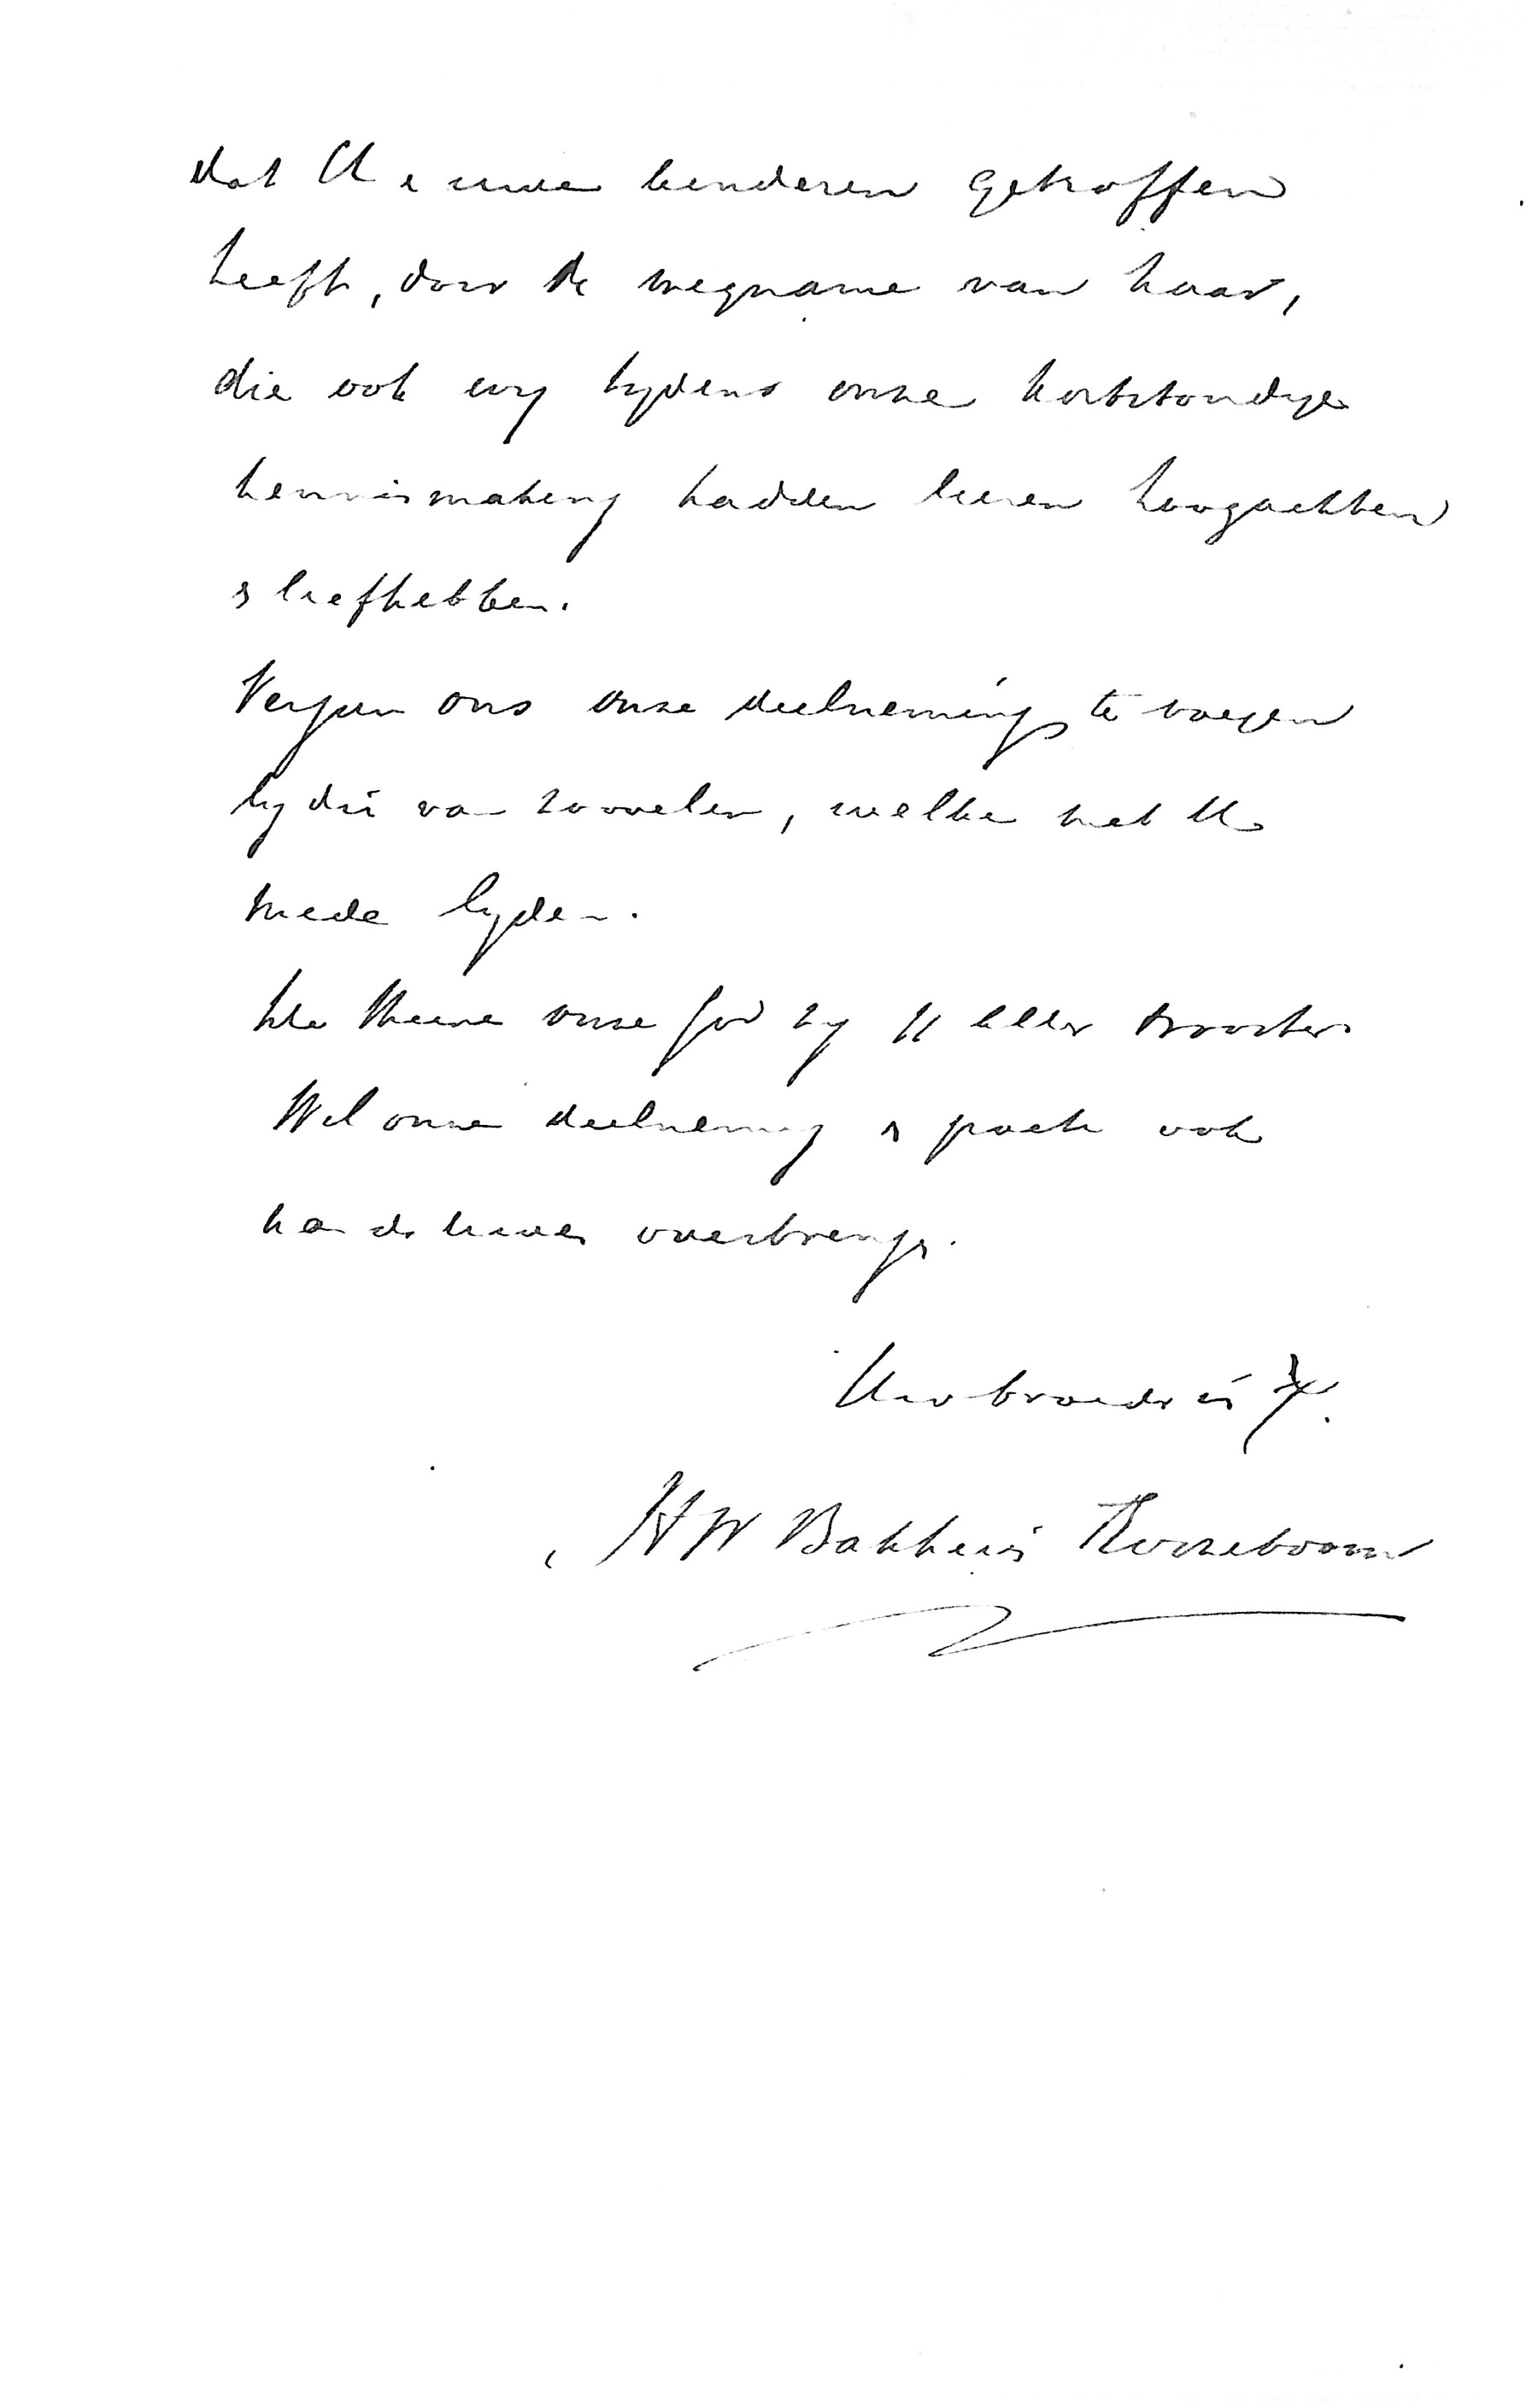 dat U & uwe kinderen getroffen
heeft, door de wegname van haar,
die ook wij tijdens onze kortstondige
kennismaking hadden leeren hoogachten
& liefhebben.
Vergun ons onze deelneming te voegen
bij die van zoovelen, welke met U
mede lijden.
De Heere onze God zij U aller Trooster.
Wil onze deelneming & ook
overbrengen.
Uw broeder in X.
HW Bakhuis Roozeboom